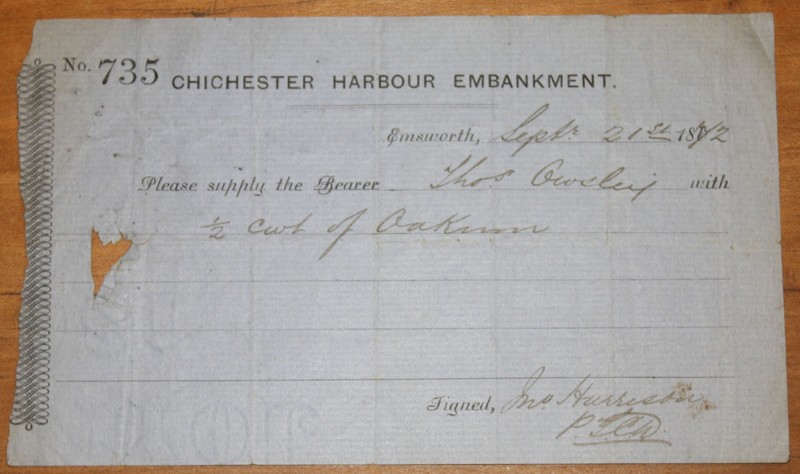 No. 735 CHICHESTER HARBOUR EMBANKMENT.
Emsworth, Septr 21st 1872
Please supply the Bearer Thos Owsley with
½ cwt of Oakum
Signed, Jno Harrison